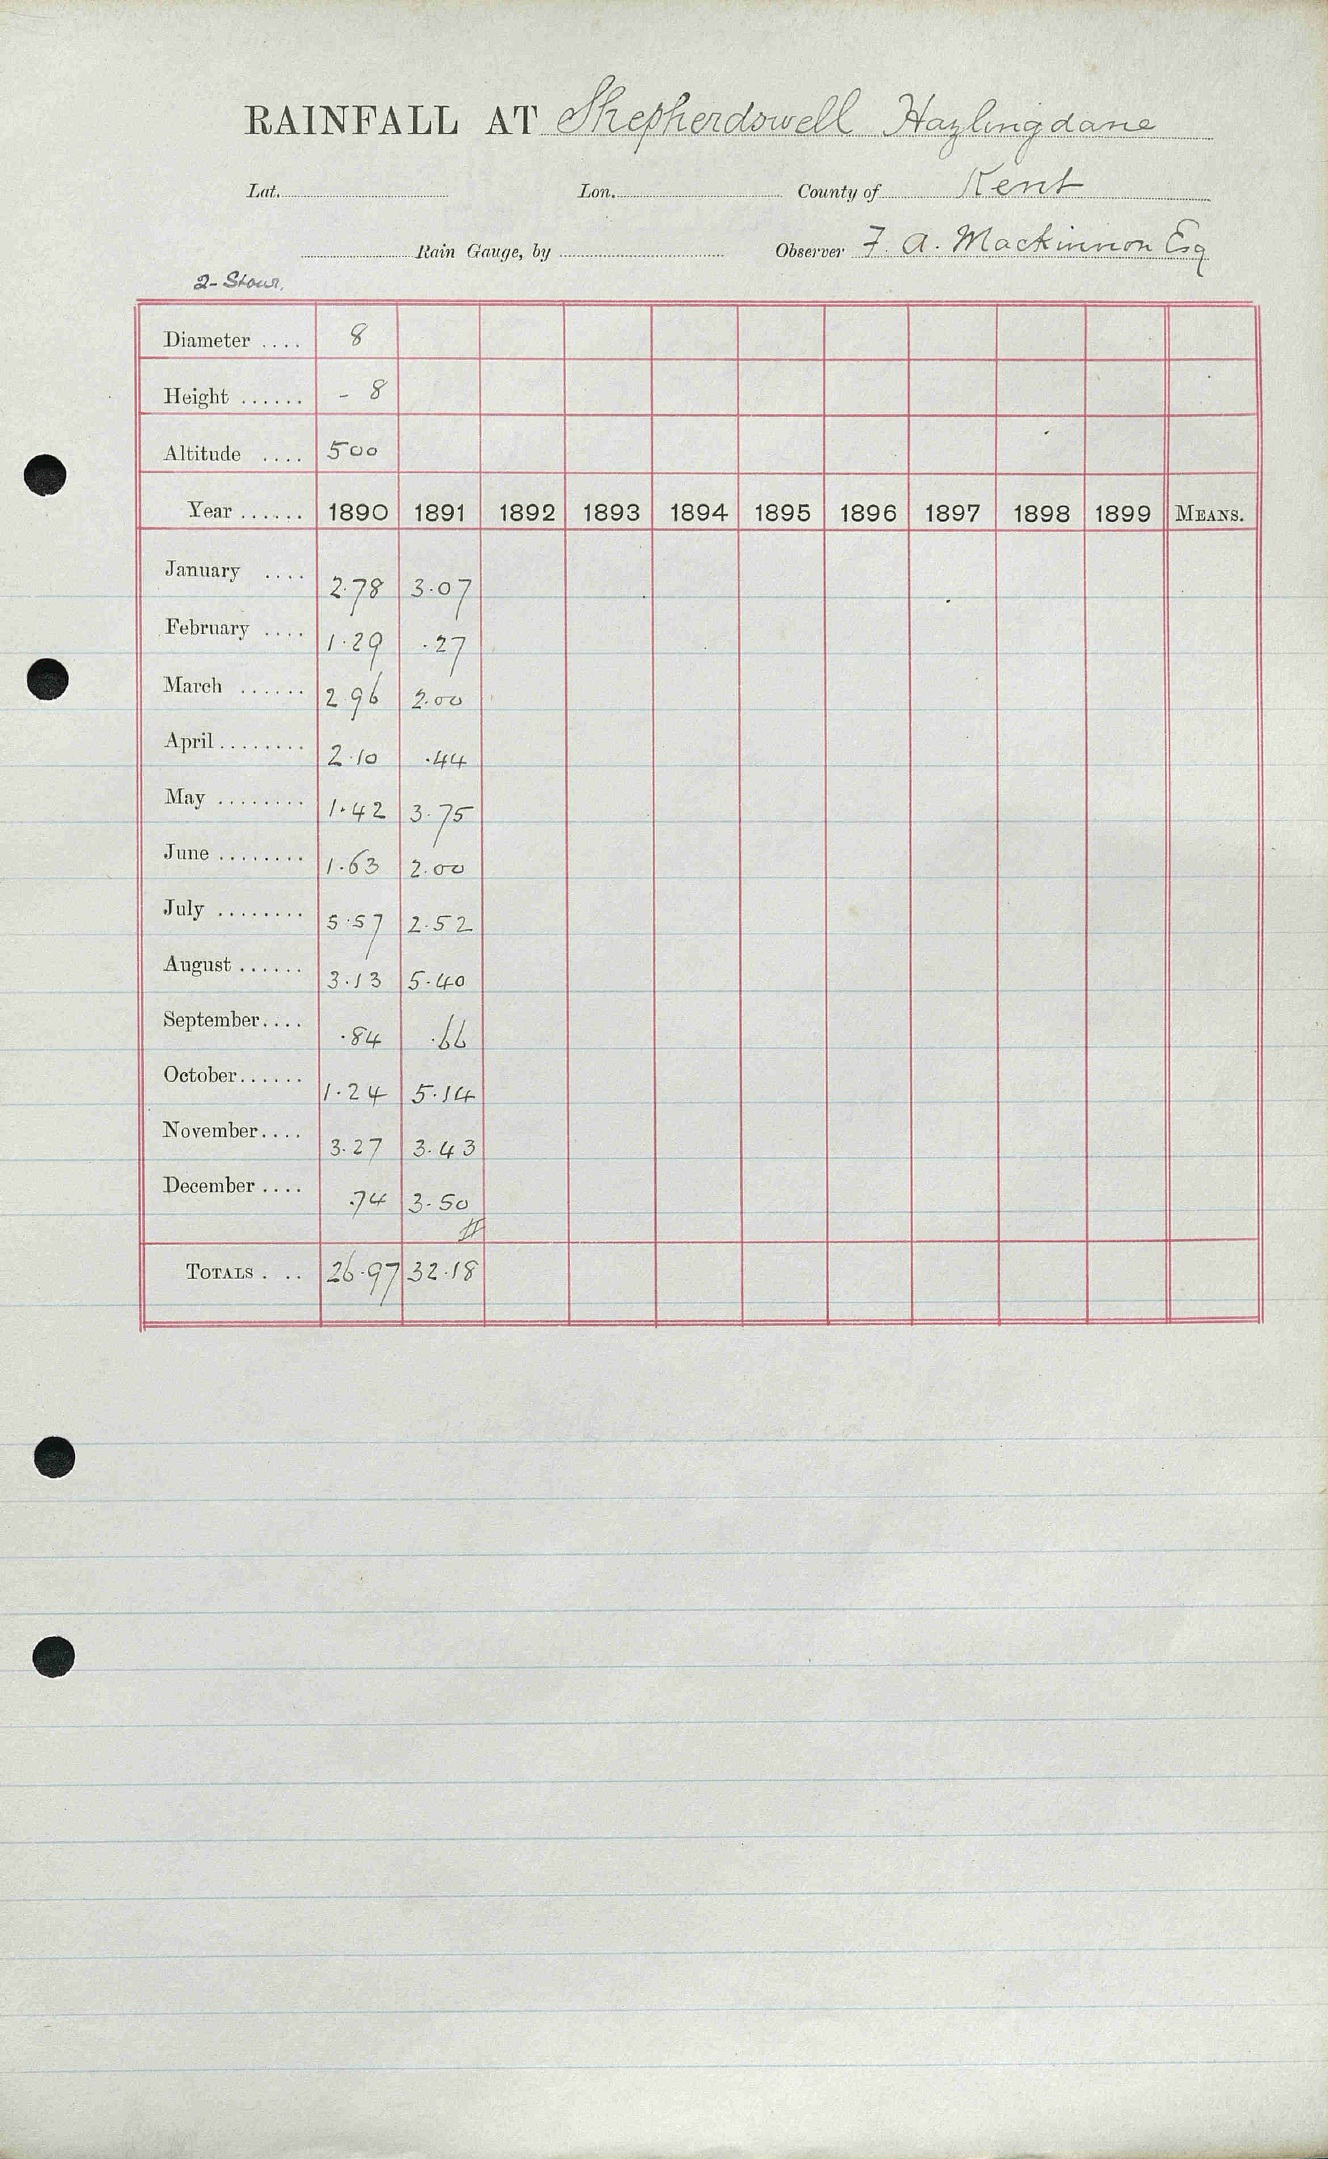 RAINFALL AT Shepherdswell Hazlingdane
Lat. Lon. County of Kent
Rain Gauge, by Observer F. A. Mackinnon Esq
2 - Stour.
Diameter .... 8
Height ...... - 8
Altitude .... 500
Year ...... 1890 1891 1892 1893 1894 1895 1896 1897 1898 1899 MEANS.
January .... 2.78 3.07
February .... 1.29 .27
March ...... 2.96 2.00
April ........ 2.10 .44
May ........ 1.42 3.75
June ........ 1.63 2.00
July ........ 5.57 2.52
August ...... 3.13 5.40
September.... .84 .66
October...... 1.24 5.14
November.... 3.27 3.43
December .... .74 3.50
TOTALS . .. 26.97 32.18